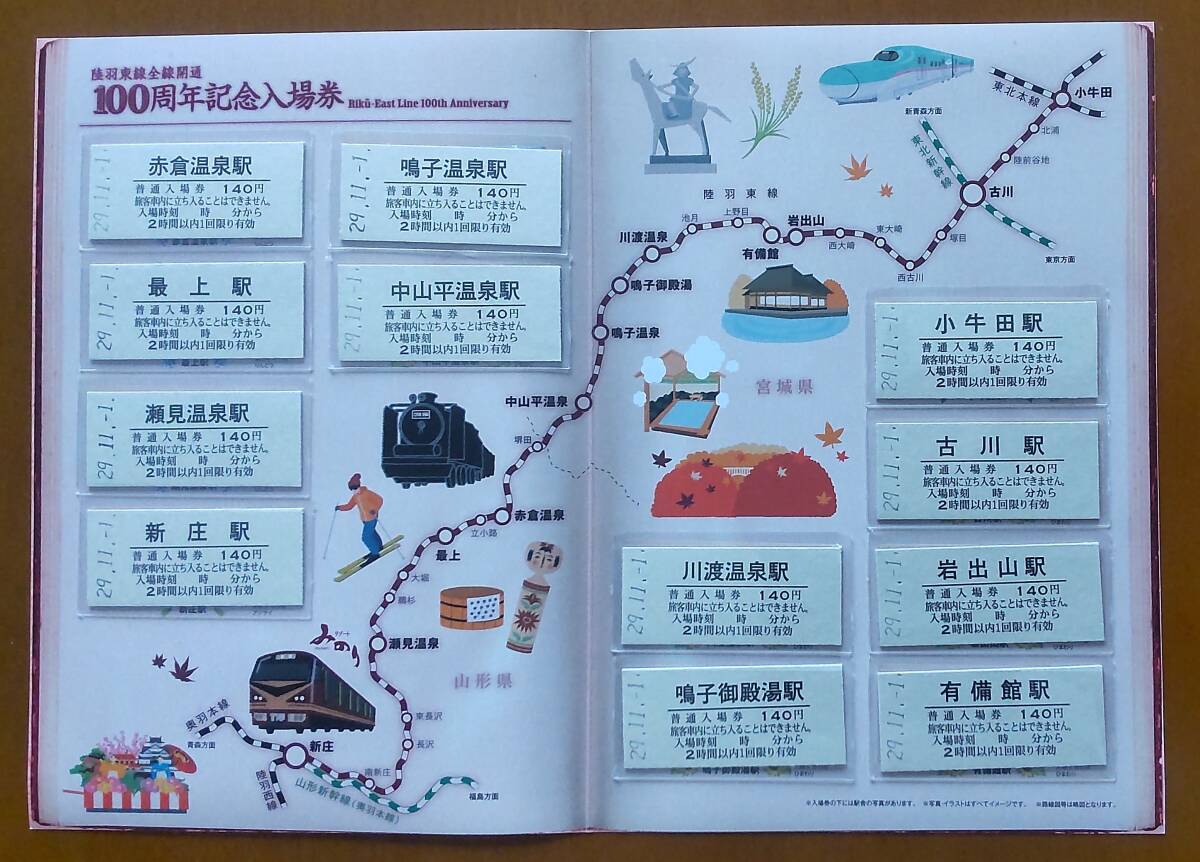 陸羽東線全線開通
100周年記念入場券 Rikū-East Line 100th Anniversary
29.11.-1
赤倉温泉駅
普通入場券 140円
旅客車内に立ち入ることはできません。
入場時刻 時 分から
2時間以内1回限り有効
29.11.-1
鳴子温泉駅
普通入場券 140円
旅客車内に立ち入ることはできません。
入場時刻 時 分から
2時間以内1回限り有効
29.11.-1
最上駅
普通入場券 140円
旅客車内に立ち入ることはできません。
入場時刻 時 分から
2時間以内1回限り有効
最上駅
29.11.-1
中山平温泉駅
普通入場券 140円
旅客車内に立ち入ることはできません。
入場時刻 時 分から
2時間以内1回限り有効
29.11.-1.
瀬見温泉駅
普通入場券 140円
旅客車内に立ち入ることはできません。
入場時刻 時 分から
2時間以内1回限り有効
29.11.-1
新庄駅
普通入場券 140円
旅客車内に立ち入ることはできません。
入場時刻 時 分から
2時間以内1回限り有効
新庄駅
29.11.-1
小牛田駅
普通入場券 140円
旅客車内に立ち入ることはできません。
入場時刻 時 分から
2時間以内1回限り有効
29.11.-1
古川駅
普通入場券 140円
旅客車内に立ち入ることはできません。
入場時刻 時 分から
2時間以内1回限り有効
29.11.-1
川渡温泉駅
普通入場券 140円
旅客車内に立ち入ることはできません。
入場時刻 時 分から
2時間以内1回限り有効
29.11.-1
岩出山駅
普通入場券 140円
旅客車内に立ち入ることはできません。
入場時刻 時 分から
2時間以内1回限り有効
29.11.-1
鳴子御殿湯駅
普通入場券 140円
旅客車内に立ち入ることはできません。
入場時刻 時 分から
2時間以内1回限り有効
鳴子御殿湯駅
29.11.-1
有備館駅
普通入場券 140円
旅客車内に立ち入ることはできません。
入場時刻 時 分から
2時間以内1回限り有効
有備館駅
東北本線
小牛田
新青森方面
北浦
陸前谷地
東北新幹線
古川
東京方面
塚目
西古川
東大崎
西大崎
岩出山
有備館
上野目
池月
陸羽東線
川渡温泉
鳴子御殿湯
鳴子温泉
宮城県
中山平温泉
堺田
赤倉温泉
立小路
最上
大堀
鵜杉
瀬見温泉
リゾート
みのり
山形県
東長沢
長沢
南新庄
新庄
奥羽本線
青森方面
陸羽西線
山形新幹線(奥羽本線)
福島方面
※入場券の下には駅舎の写真があります。 ※写真・イラストはすべてイメージです。 ※路線図等は略図となります。